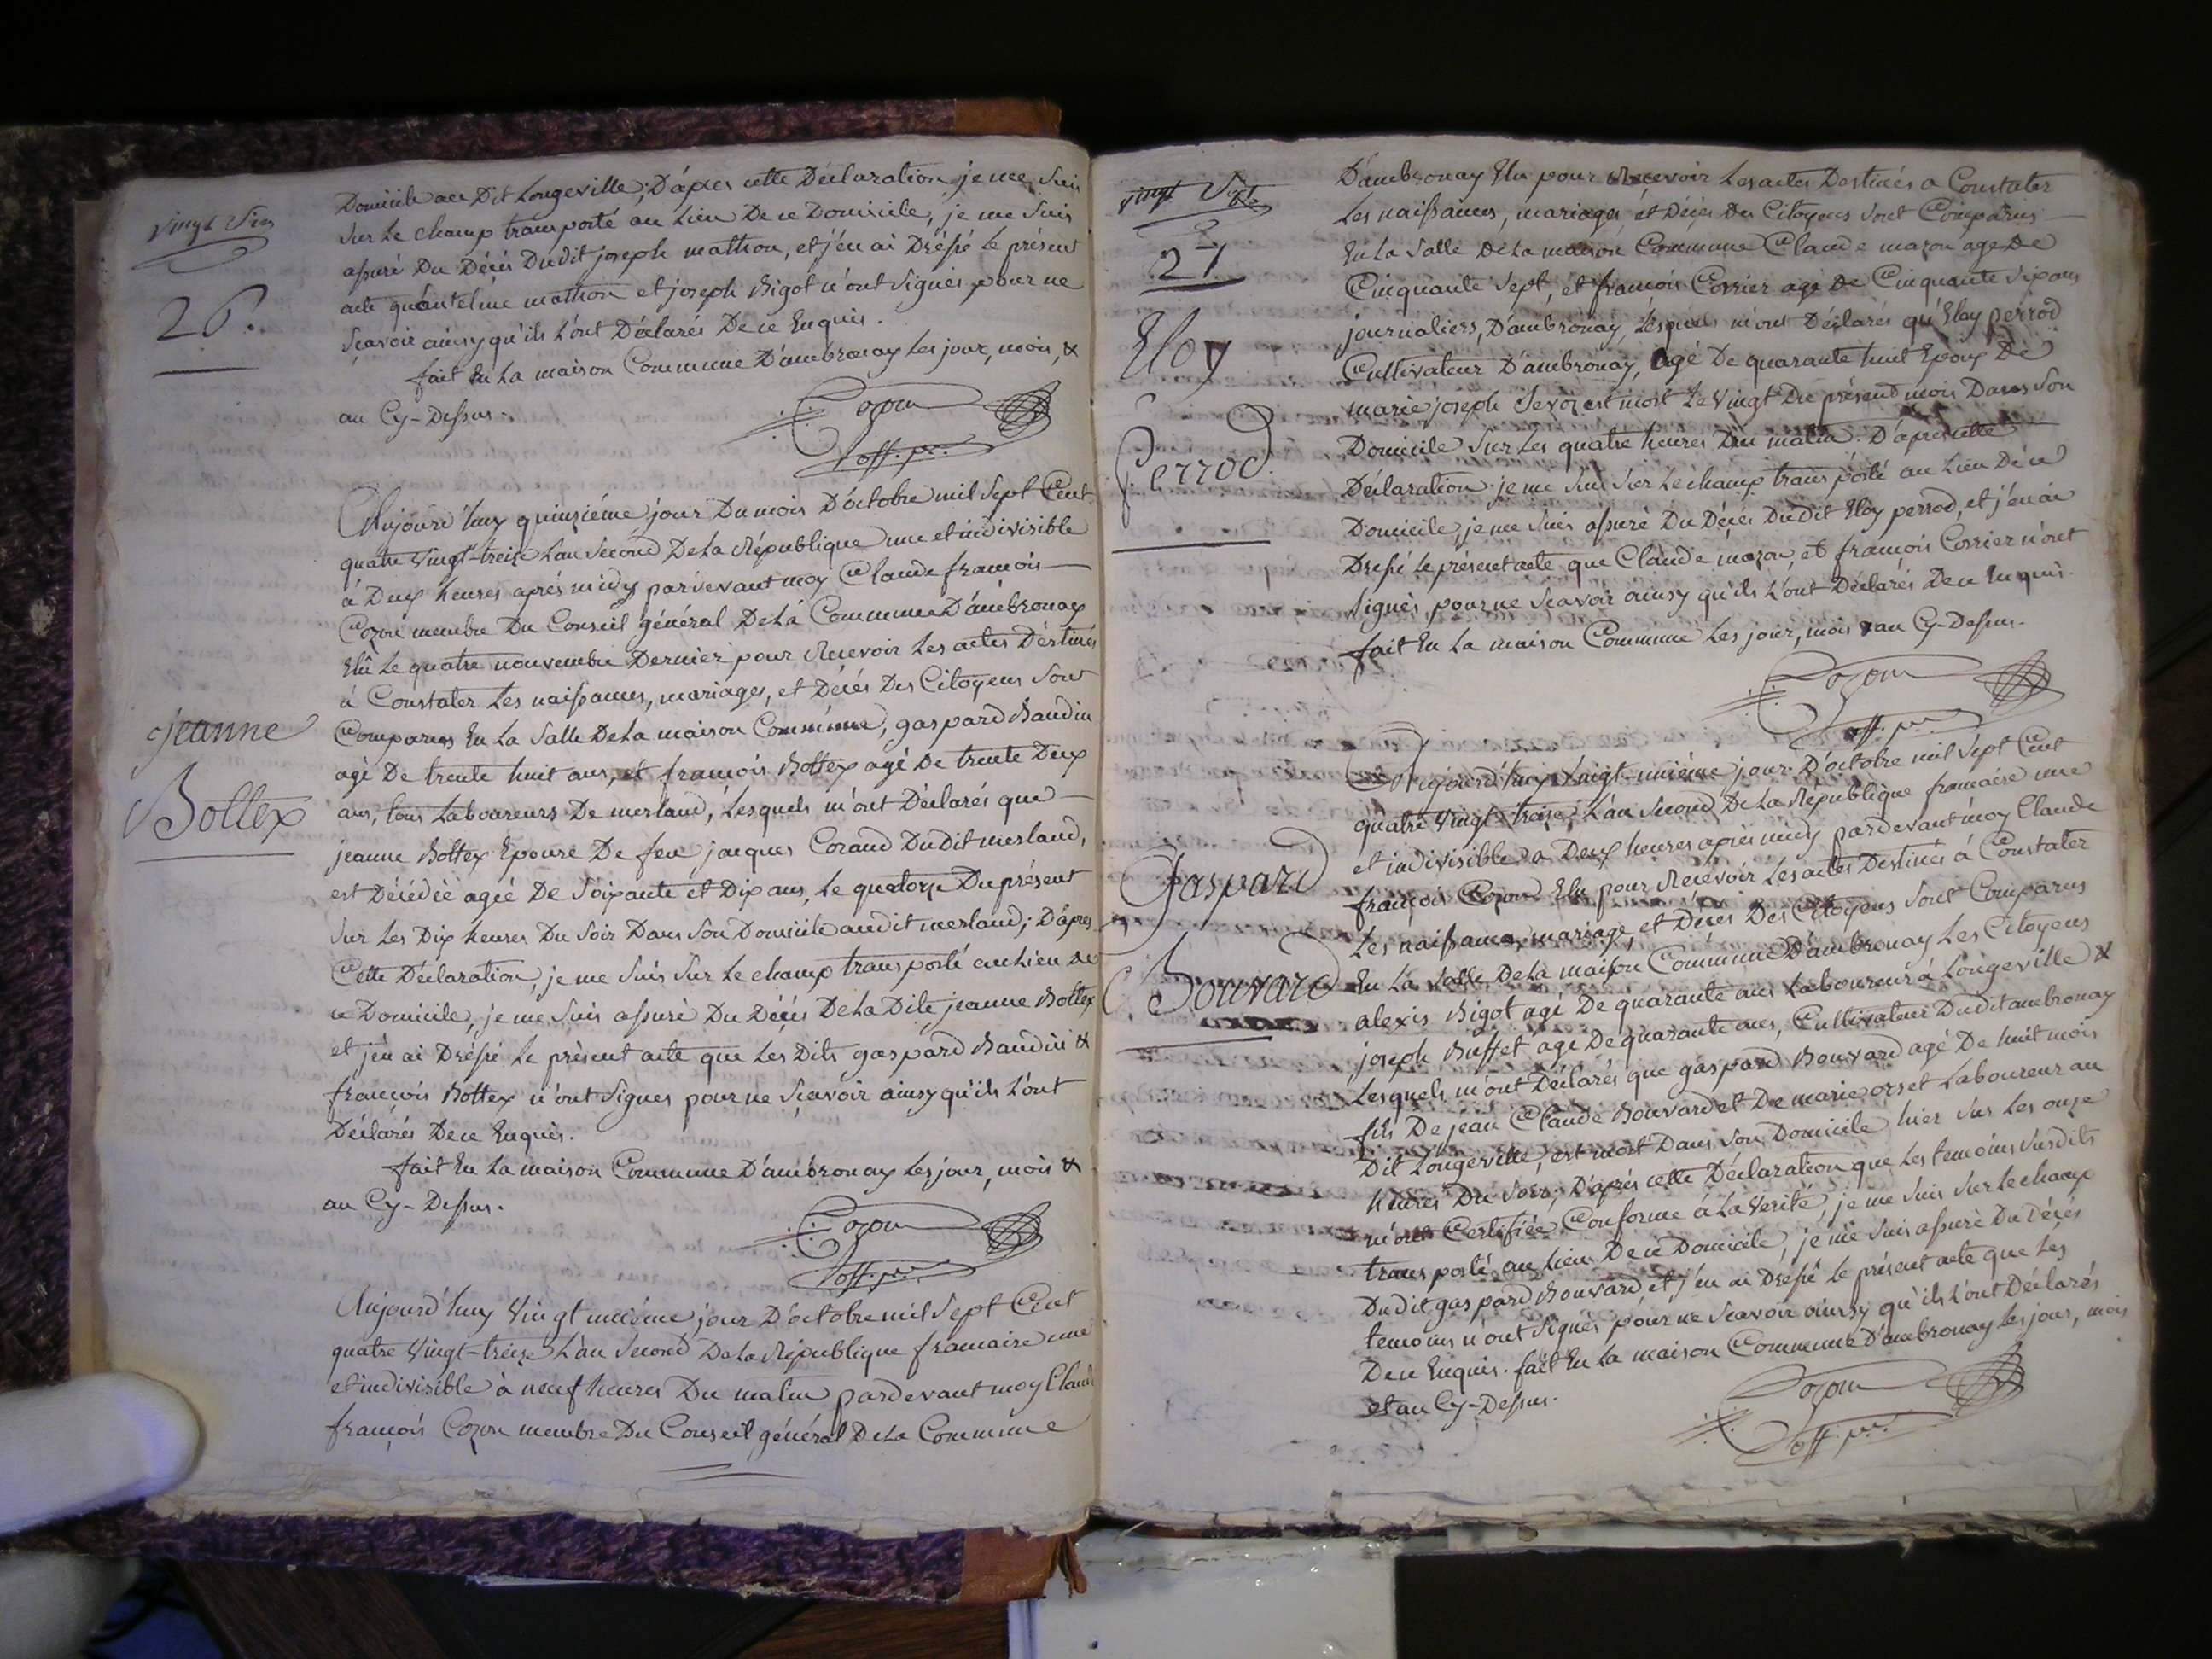 vingt Six
26.
Domicile au Dit Longeville; D'après cette Déclaration je me Suis
Sur Le champ transporté au Lieu De ce Domicile, je me Suis
assuré Du Décés Dudit joseph mathon, et j'en ai Dréssé Le présent
acte qu'antelme mathon et joseph Bigot n'ont Signés pour ne
Sçavoir ainsy qu'ils L'ont Déclarés De ce Enquis.
fait En La maison Commune D'ambronay Les jour, mois, &
an Cy-Dessus.
Cozon
off. p.er
jeanne
Bottex
Aujourd'huy quinziéme jour Du mois D'octobre mil Sept Cent
quatre Vingt-treize L'an Second De La République une et indivisible
à Deux heures après midy pardevant moy Claude françois
Cozon membre Du Conseil général De La Commune D'ambronay
Elû Le quatre nouvembre Dernier pour Recevoir Les actes Déstinés
à Constater Les naissances, mariages, et Décés Des Citoyens Sont
Comparus En La Salle De La maison Commune, gaspard Baudin
agé De trente huit ans, et françois Bottex agé De trente Deux
ans, tous Laboureurs De merland, Lesquels m'ont Déclarés que
jeanne Bottex Epouse De feu jacques Corand Dudit merland,
est Décédée agée De Soixante et Dix ans, Le quatorze Du présent
Sur Les Dix heures Du Soir Dans Son Domicile audit merland; D'après
Cette Déclaration, je me Suis Sur Le champ transporté au Lieu De
ce Domicile, je me Suis assuré Du Décés De La Dite jeanne Bottex
et j'en ai Dréssé Le présent acte que Les Dits gaspard Baudin &
françois Bottex n'ont Signés pour ne Sçavoir ainsy qu'ils L'ont
Déclarés De ce Enquis.
fait En La maison Commune D'ambronay Les jour, mois &
an Cy-Dessus.
Cozon
off. p.er
Aujourd'huy Vingt uniéme jour D'octobre mil Sept Cent
quatre Vingt-treize L'an Second De La République francaise une
et indivisible à neuf heures Du matin pardevant moy Claude
françois Cozon membre Du Conseil général De La Commune
vingt Sept
27
Eloy
perrod.
D'ambronay Elu pour Recevoir Les actes Destinés a Constater
Les naissances, mariages et Décés Des Citoyens Sont Comparus
En La Salle De La maison Commune Claude mazon age De
Cinquante Sept, et françois Corrier agé De Cinquante Six ans
journaliers, D'ambronay, Lésquels m'ont Déclarés qu'Eloy perrod
Cultivateur D'ambronay, agé De quarante huit Epoux De
marie joseph Sevoz est mort Le Vingt Du présent mois Dans Son
Domicile Sur Les quatre heures Du matin. D'après cette
Déclaration je me Suis Sur Le champ transporté au Lieu De ce
Domicile, je me Suis assuré Du Décés Dudit Eloy perrod, et j'en ai
Dressé Le présent acte que Claude mazon, et françois Corrier n'ont
Signés, pour ne Sçavoir ainsy qu'ils L'ont Déclarés De ce Enquis.
fait En La maison Commune Les jour, mois & an Cy-Dessus.
Cozon
off. p.er
Gaspard
Bouvard
Aujourd'huy Vingt-uniéme jour D'octobre mil Sept Cent
quatre Vingt-treize, L'an Second De La République francaise une
et indivisible a Deux heures après midy pardevant moy Claude
françois Cozon Elu pour Recevoir Les actes Destinés à Constater
Les naissances, mariage, et Décés Des Citoyens Sont Comparus
En La Salle De La maison Commune D'ambronay Les Citoyens
alexis Bigot agé De quarante ans Laboureur à Longeville &
joseph Buffet agé De quarante ans, Cultivateur Dudit ambronay
Lesquels m'ont Déclarés que gaspard Bouvard agé De huit mois
fils De jean Claude Bouvard et De marie orset Laboureur au
Dit Longeville, est mort Dans Son Domicile hier Sur Les onze
heures Du Soir, D'après cette Déclaration que Les temoins Susdits
m'ont Certifiée Conforme à La Verité, je me Suis Sur Le champ
transporté au Lieu De ce Domicile, je me Suis assuré Du Décés
Dudit gaspard Bouvard et j'en ai Dréssé Le présent acte que Les
temoins n'ont Signés pour ne Sçavoir ainsy qu'ils L'ont Déclarés
De ce Enquis. fait En La maison Commune D'ambronay Les jour, mois
et an Cy-Dessus.
Cozon
off. p.er